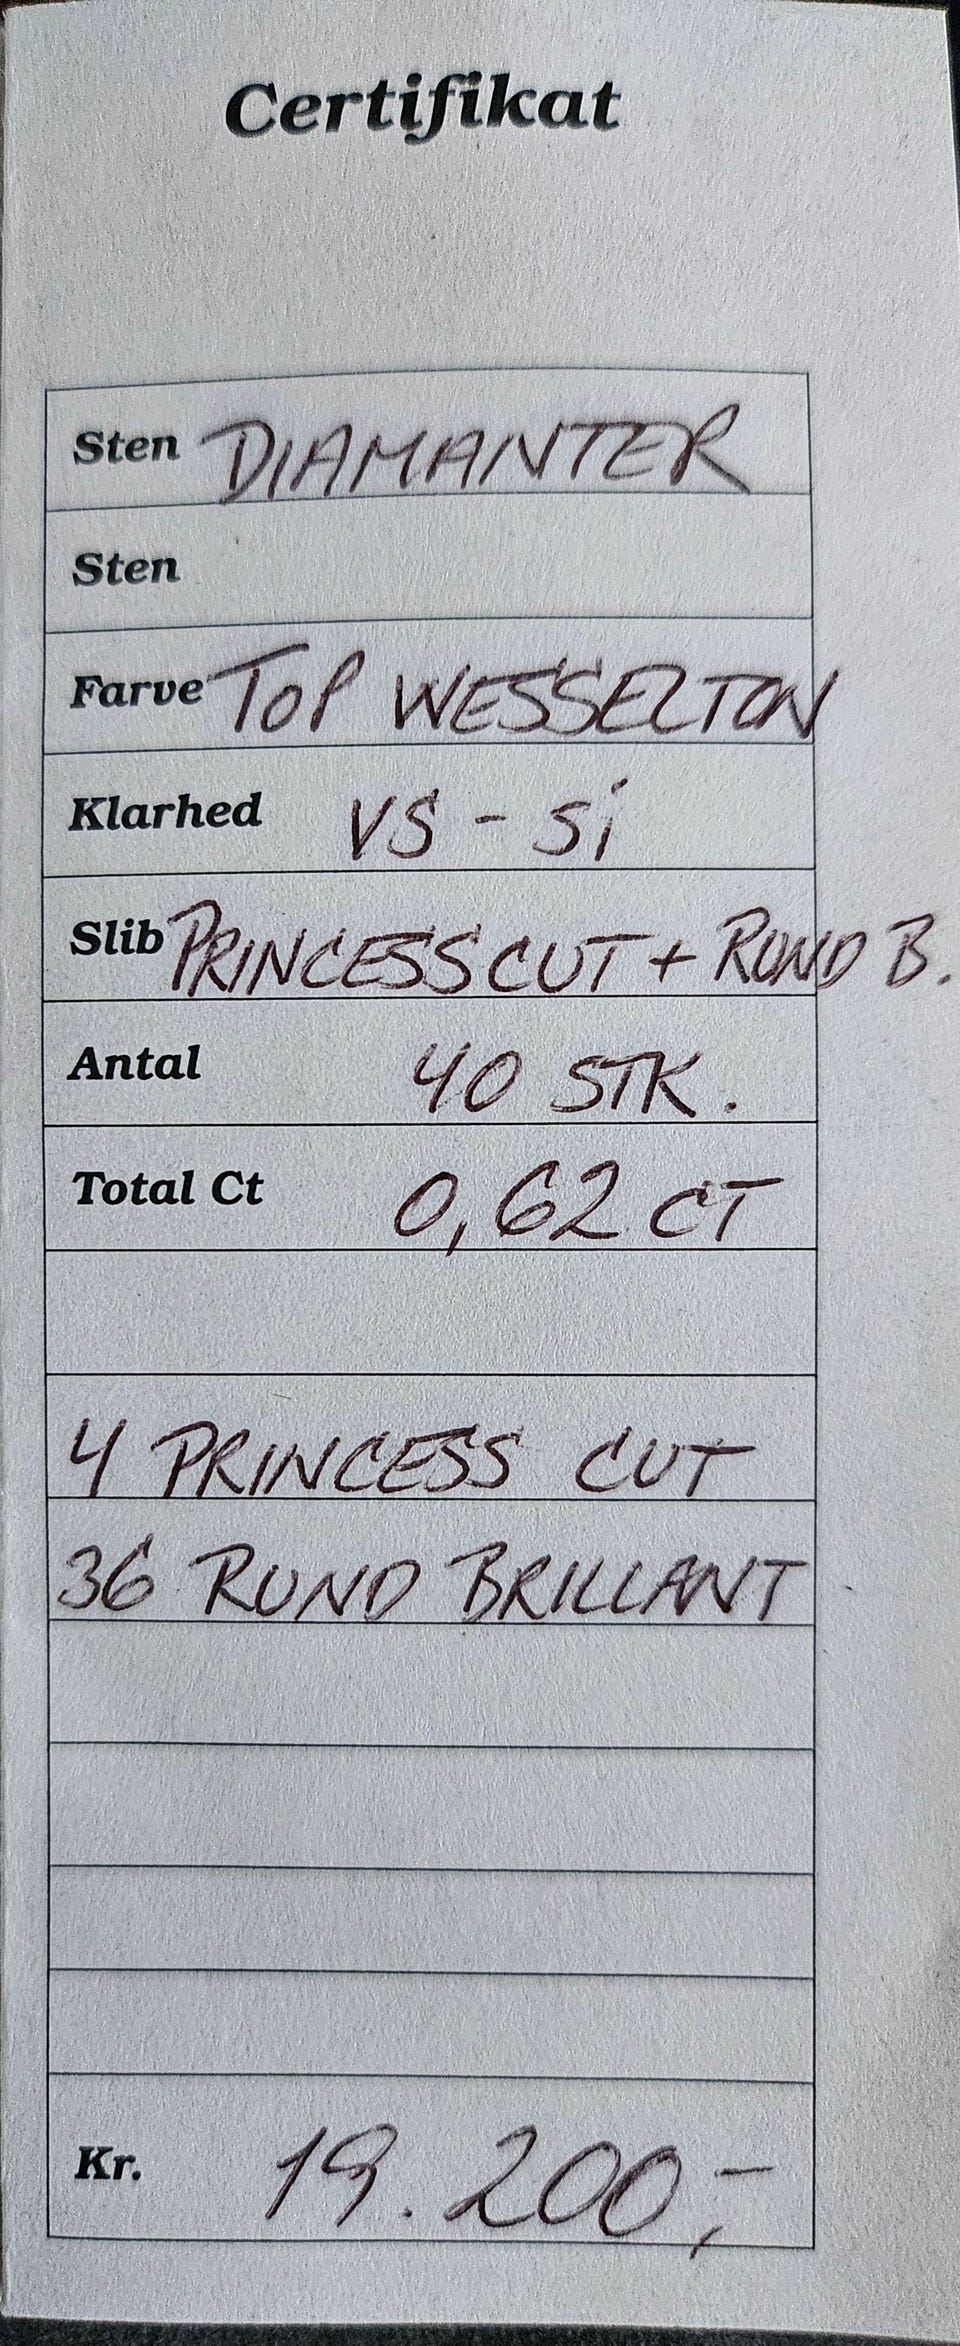 Certifikat
Sten DIAMANTER
Sten
Farve TOP WESSELTON
Klarhed VS - Si
Slib PRINCESS CUT + ROND B.
Antal 40 STK.
Total Ct 0,62 CT
4 PRINCESS CUT
36 RUND BRILLANT
Kr. 19.200,-